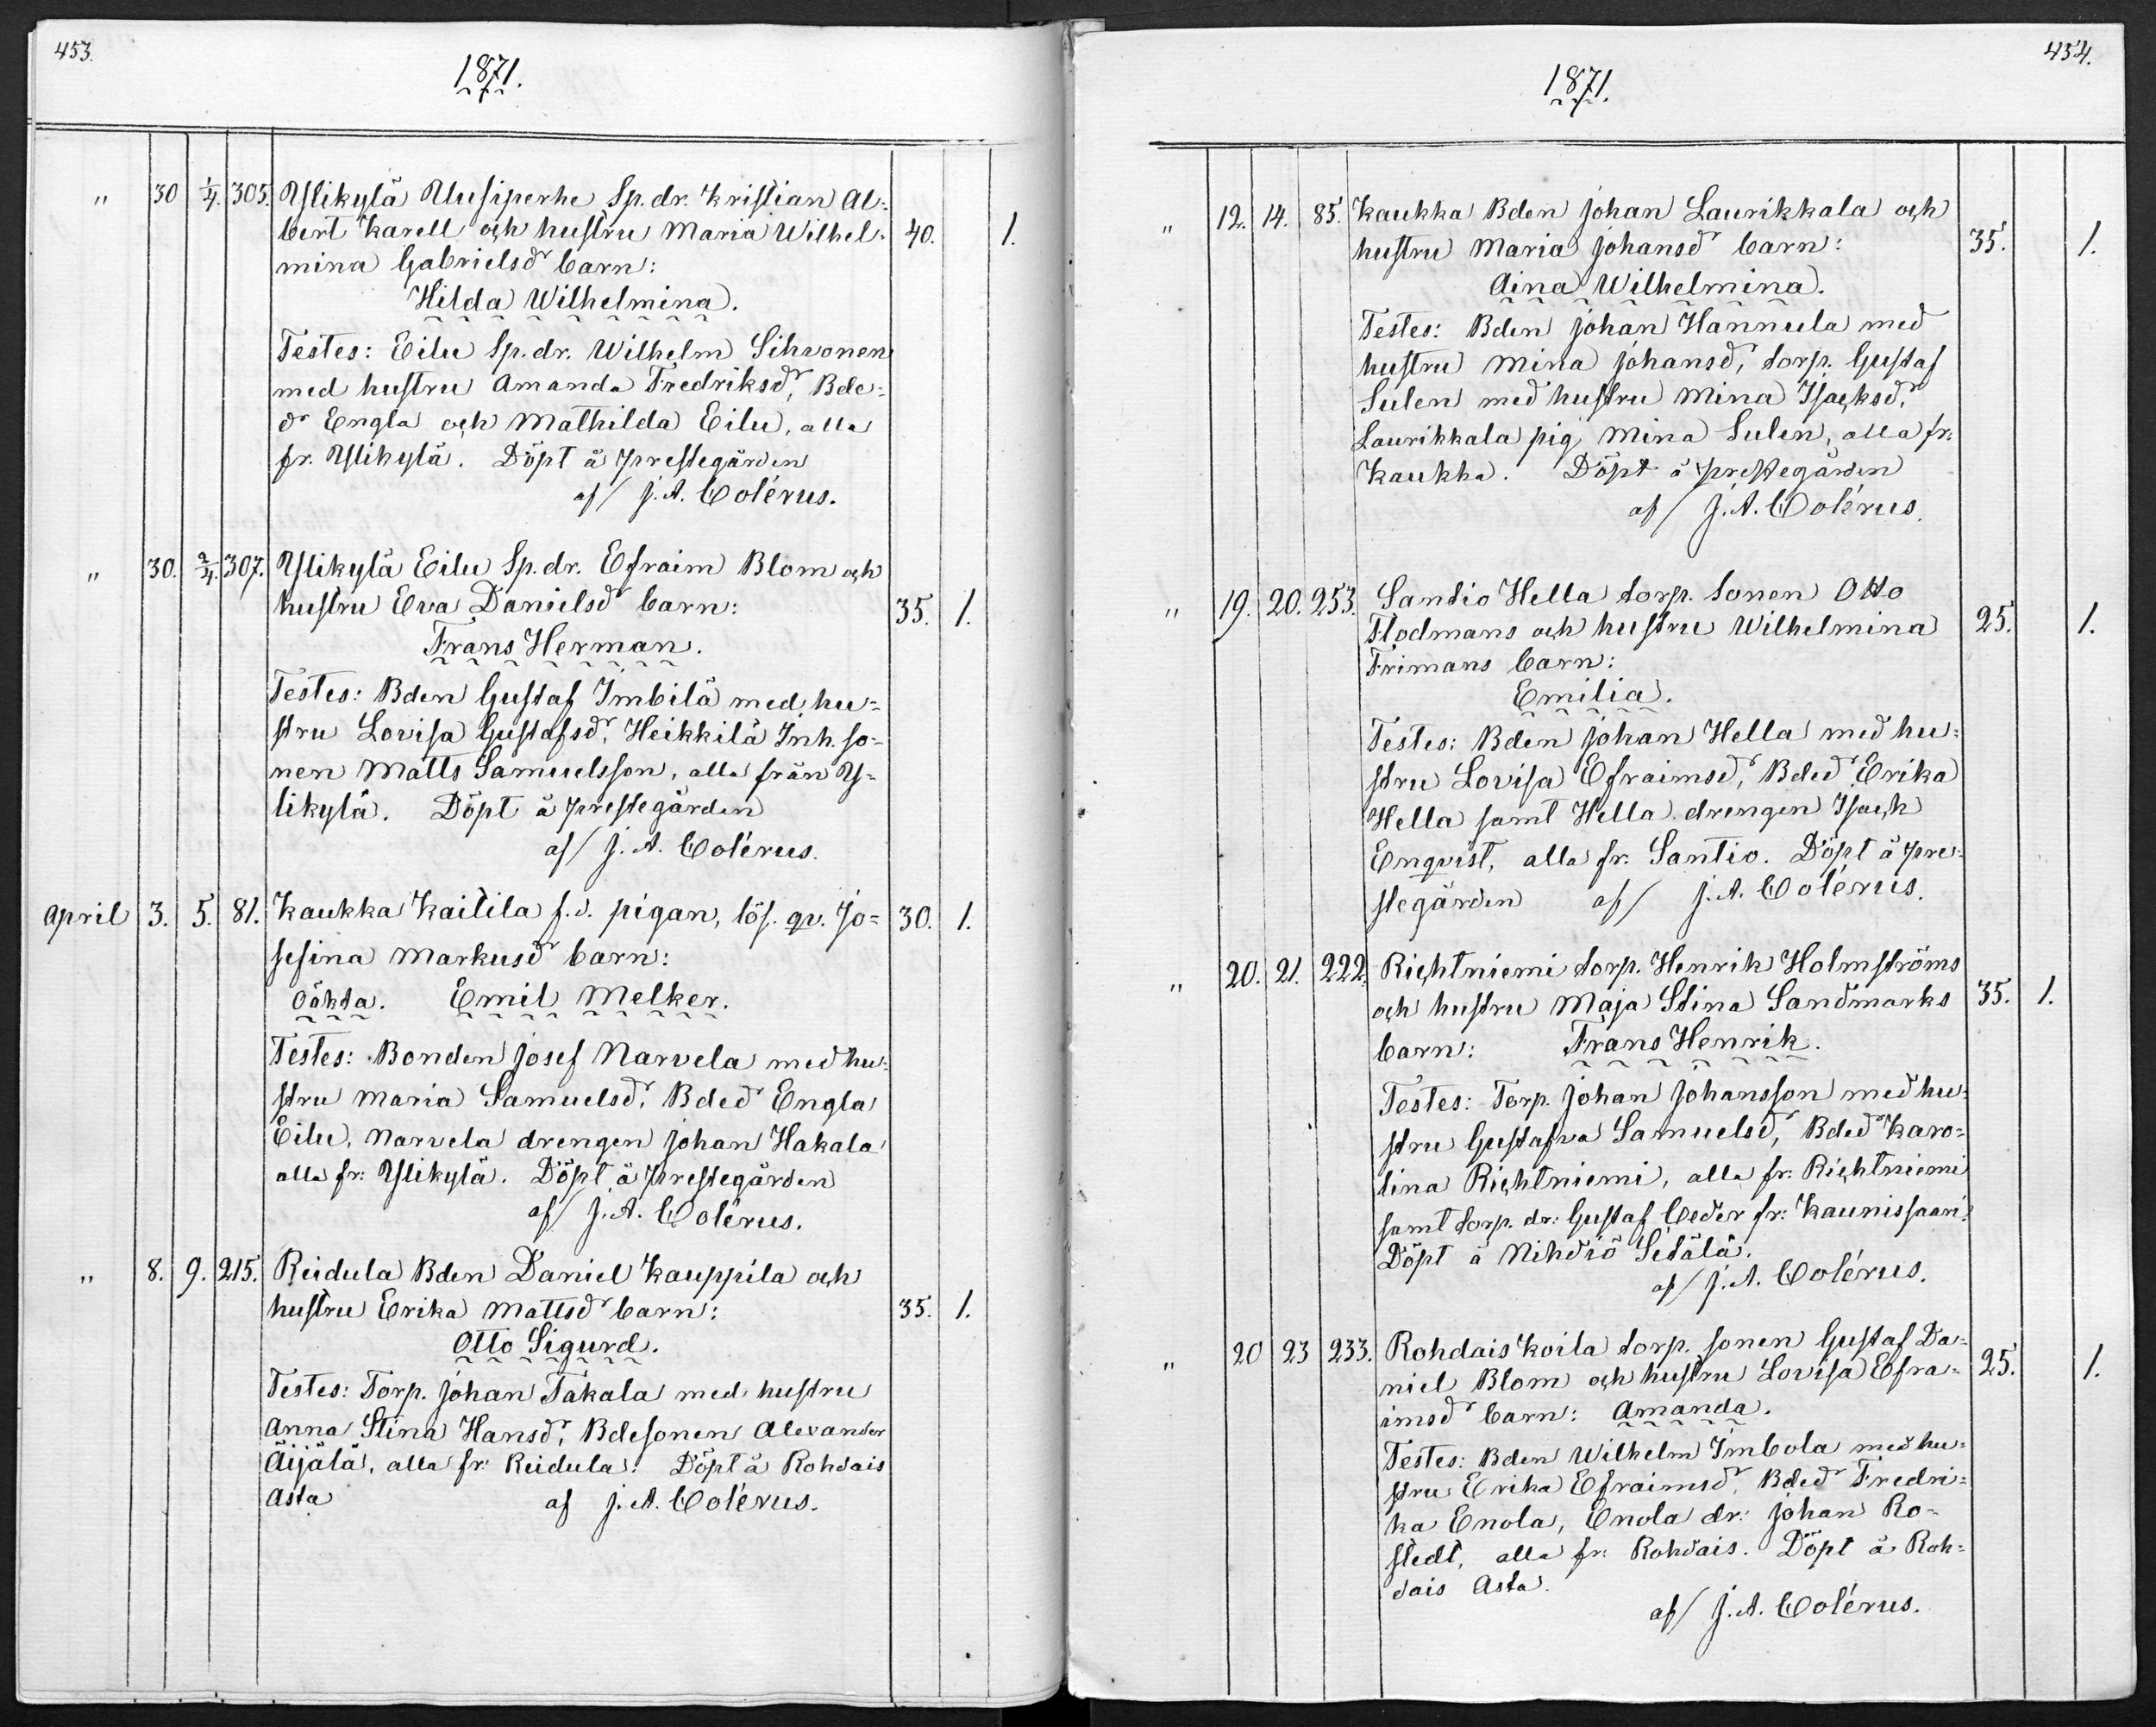 453.
1871.
" 30 1/4. 305. Ylikylä Uusiperhe Sp. dr. Kristian Al-
bert Karell och hustru Maria Wilhel- 40. 1.
mina Gabrielsdr barn:
Hilda Wilhelmina.
Testes: Eilu Sp. dr. Wilhelm Sihvonen
med hustru Amanda Fredriksdr, Bde-
dr Engla och Mathilda Eilu, alla
fr. Ylikylä. Döpt å prestegården
af J. A. Colérus.
" 30. 2/4. 307. Ylikylä Eilu Sp. dr. Efraim Blom och
hustru Eva Danielsdr barn: 35. 1.
Frans Herman.
Testes: Bden Gustaf Imbilä med hu-
stru Lovisa Gustafsdr, Heikkilä Inh. so-
nen Matts Samuelsson, alla från Y-
likylä. Döpt å prestegården
af J. A. Colérus.
April 3. 5. 81. Kaukka Kaitila f. d. pigan, lös. qv. Jo- 30. 1.
sefina Markusdr barn:
Oäkta. Emil Melker.
Testes: Bonden Josef Narvela med hu-
stru Maria Samuelsdr, Bdedr Engla
Eilu, Narvela drengen Johan Hakala
alla fr: Ylikylä. Döpt å prestegården
af J. A. Colérus.
" 8. 9. 215. Reidula Bden Daniel Kauppila och
hustru Erika Mattsdr barn: 35. 1.
Otto Sigurd.
Testes: Torp. Johan Takala med hustru
Anna Stina Hansdr, Bdesonen Alexander
Äijälä, alla fr: Reidula. Döpt å Rohdais
Asta af J. A. Colérus.
454.
1871.
" 12. 14. 85. Kaukka Bden Johan Laurikkala och
hustru Maria Johansdr barn: 35. 1.
Aina Wilhelmina.
Testes: Bden Johan Hannula med
hustru Mina Johansdr, torp. Gustaf
Sulen med hustru Mina Isacksdr,
Laurikkala pig. Mina Sulen, alla fr:
Kaukka. Döpt å prestegården
af J. A. Colérus.
" 19. 20. 253. Santio Hella torp. sonen Otto
Flodmans och hustru Wilhelmina 25. 1.
Frimans barn:
Emilia.
Testes: Bden Johan Hella med hu-
stru Lovisa Efraimsdr, Bdedr Erika
Hella samt Hella drengen Isack
Enqvist, alla fr. Santio. Döpt å pre-
stegården af J. A. Colérus.
" 20. 21. 222. Richtniemi torp. Henrik Holmströms
och hustru Maja Stina Sandmarks 35. 1.
barn: Frans Henrik.
Testes: Torp. Johan Johansson med hu-
stru Gustafva Samuelsdr, Bdedr Karo-
lina Richtniemi, alla fr: Richtniemi
samt torp. dr: Gustaf Ceder fr: Kaunissaari.
Döpt å Nihdiö Setälä.
af J. A. Colérus.
" 20 23 233. Rohdais Koila torp. sonen Gustaf Da-
niel Blom och hustru Lovisa Efra- 25. 1.
imsdr barn: Amanda.
Testes: Bden Wilhelm Imbola med hu-
stru Erika Efraimsdr, Bdedr Fredri-
ka Enola, Enola dr: Johan Ro-
stedt, alla fr: Rohdais. Döpt å Roh-
dais Asta.
af J. A. Colérus.